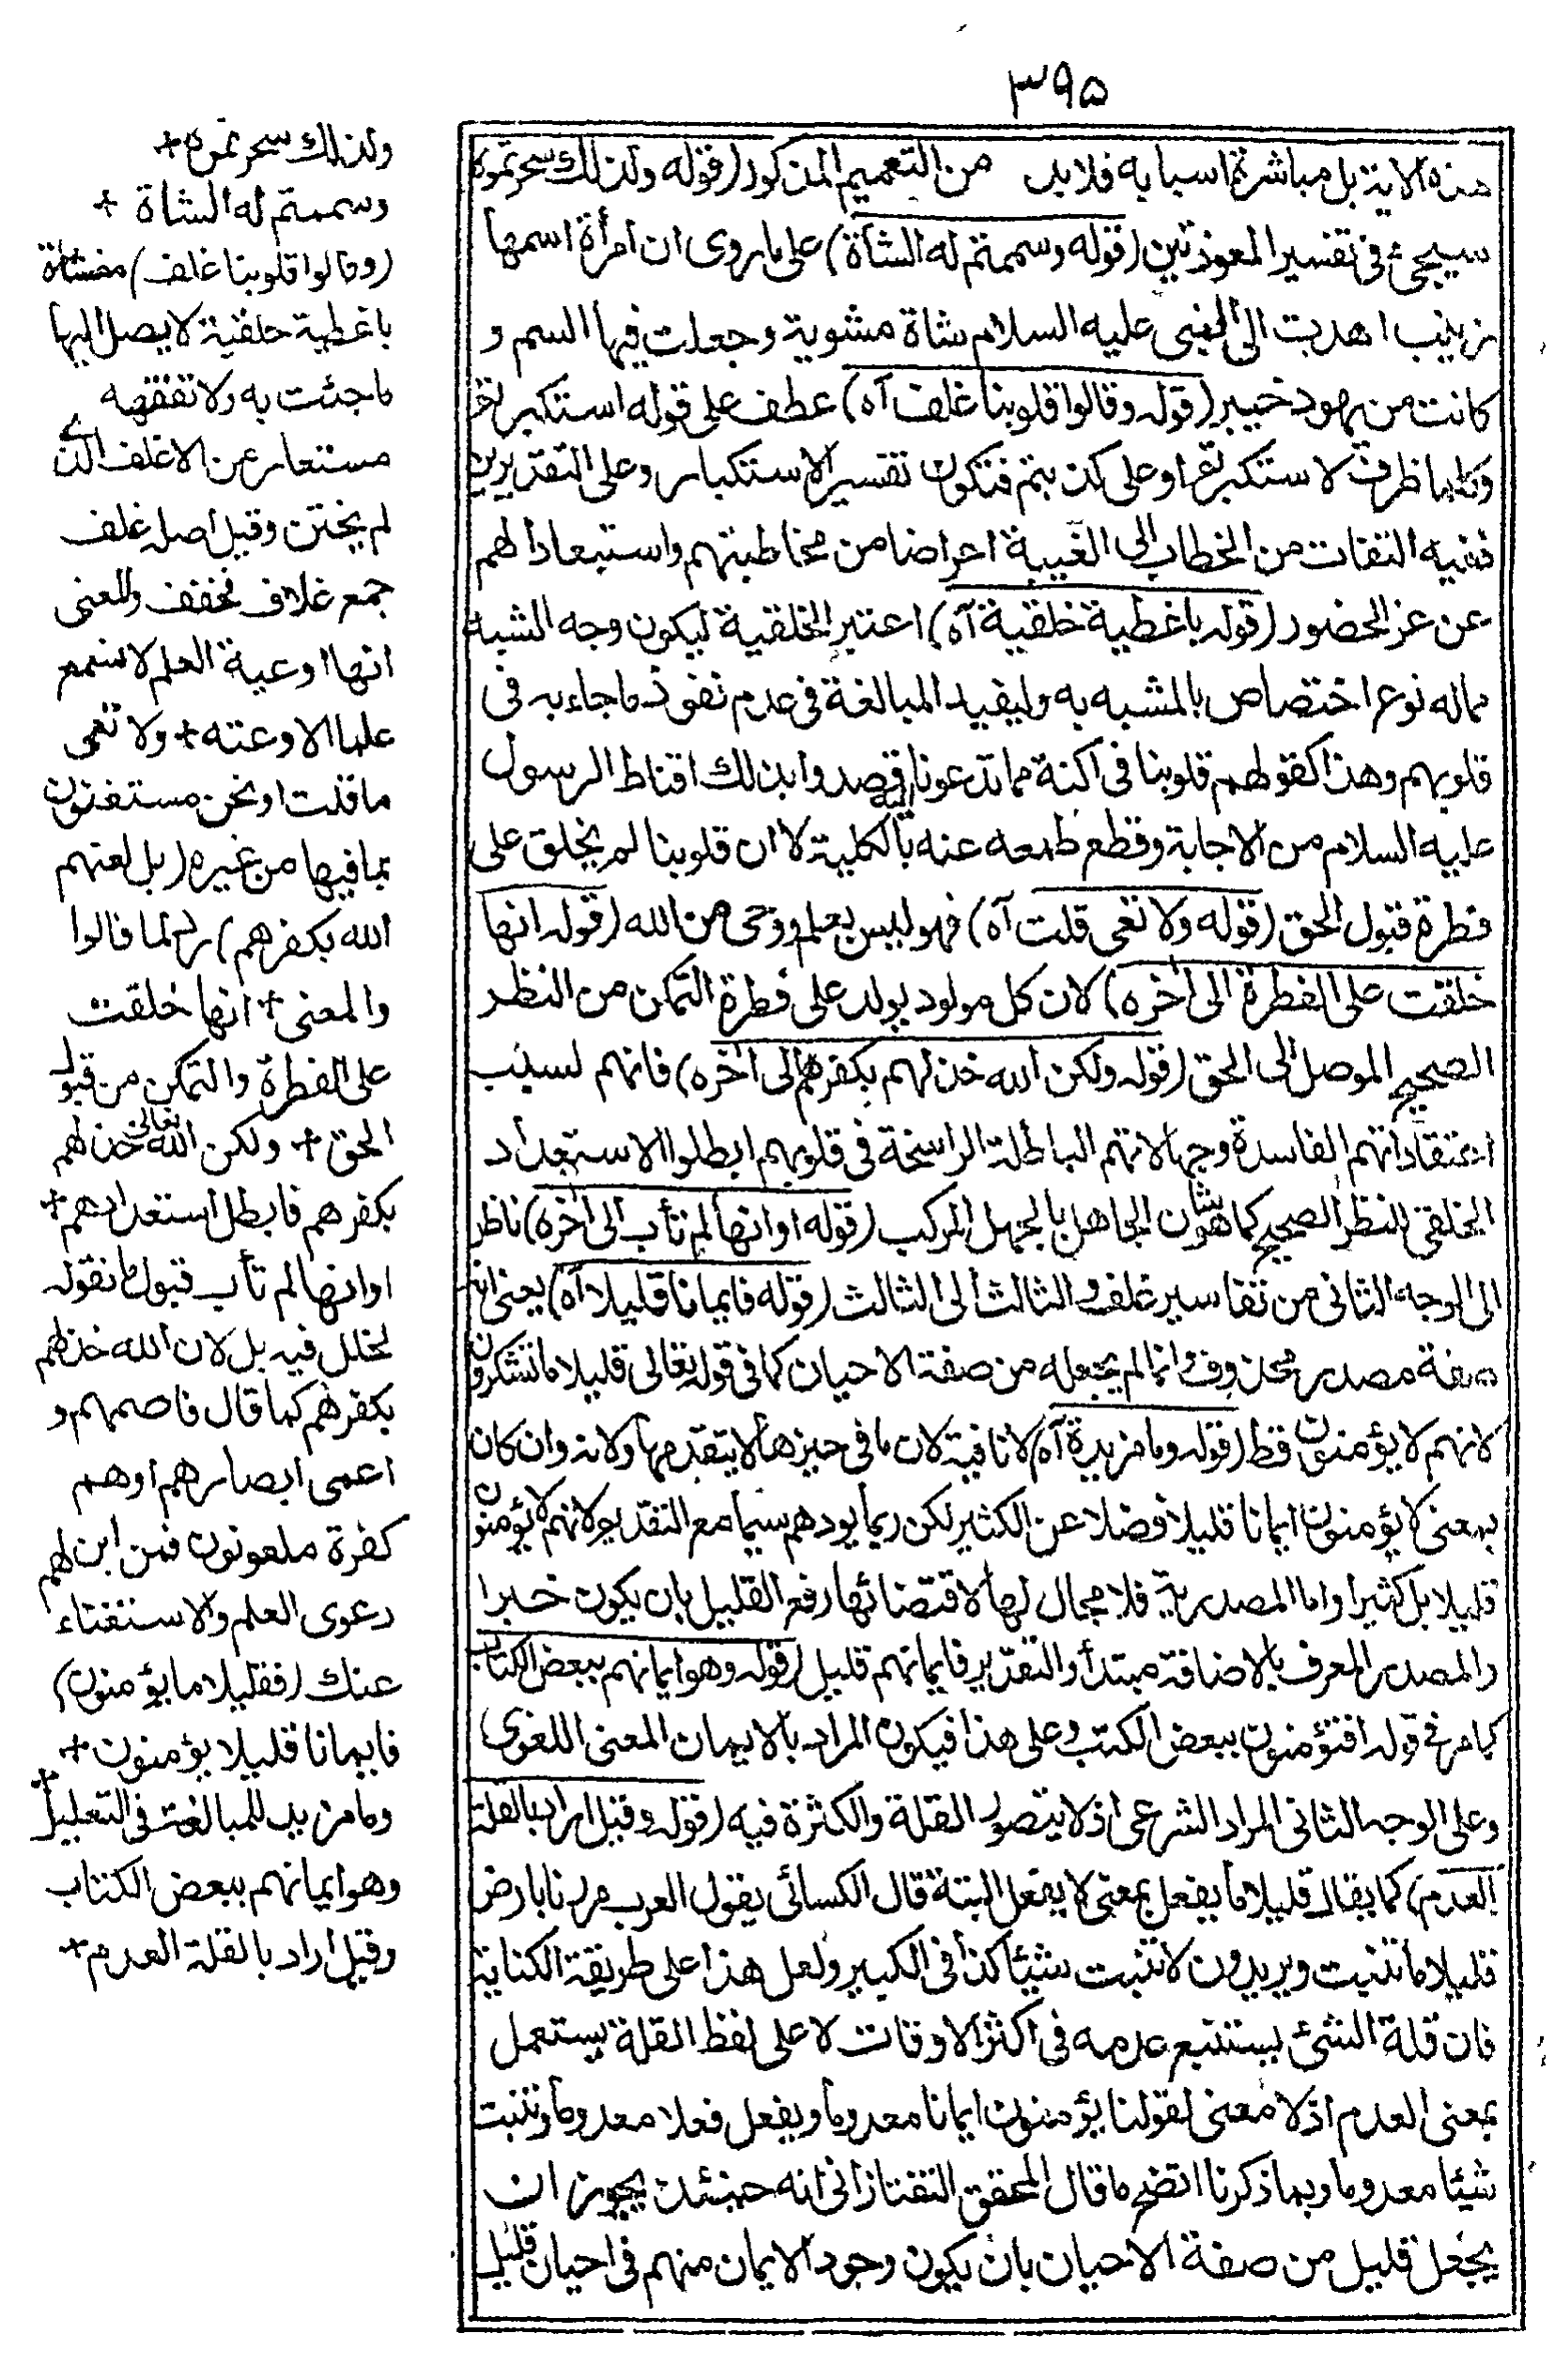 ۳۹۵
هذه الاية بل مباشرة اسبابه فلابد من التعميم المذكور (قوله ولذلك سحرتموه
سيجئ فى تفسير المعوذتين (قوله وسممتم له الشاة) على ماروى ان امرأة اسمها
زينب اهدت الى النبى عليه السلام شاة مشوية وجعلت فيها السم و
كانت من يهود خيبر (قوله وقالوا قلوبنا غلف آه) عطف على قوله استكبرتم
وكلما ظرف لاستكبرتم او على كذبتم فتكون تفسير الاستكبار وعلى التقديرين
ففيه التفات من الخطاب الى الغيبة اعراضا من مخاطبتهم واستبعادا لهم
عن عز الحضور (قوله باغطية خلقية آه) اعتبر الخلقية ليكون وجه الشبه
مماله نوع اختصاص بالمشبه به وليفيد المبالغة فى عدم نفوذ ما جاء به فى
قلوبهم وهذا كقولهم قلوبنا فى اكنة مما تدعونا اليه قصدوا بذلك اقناط الرسول
عليه السلام من الاجابة وقطع طمعه عنه بالكلية لا ان قلوبنا لم يخلق على
فطرة قبول الحق (قوله ولا تعى قلت آه) فهو ليس بعلم ووحى من الله (قوله انها
خلقت على الفطرة الى اخره) لان كل مولود يولد على فطرة التمكن من النظر
الصحيح الموصل الى الحق (قوله ولكن الله خذلهم بكفرهم الى اخره) فانهم لسبب
اعتقاداتهم الفاسدة وجهالاتهم الباطلة الراسخة فى قلوبهم ابطلوا الاستعداد
الخلقى للنظر الصحيح كما هو شان الجاهل بالجهل المركب (قوله او انها لم تأب الى اخره) ناظر
الى الوجه الثانى من تفاسير غلف والثالث الى الثالث (قوله فايمانا قليلا آه) يعنى انه
صفة مصدر محذوف وانما لم يجعله من صفة الاحيان كما فى قوله تعالى قليلا ما تشكرون
لانهم لا يؤمنون قط (قوله وما مزيدة آه) لا نافية لان ما فى حيزها لا يتقدمها ولانه وان كان
بمعنى لا يؤمنون ايمانا قليلا فضلا عن الكثير لكن ربما يوهم سيما مع التقديم لانهم لا يؤمنون
قليلا بل كثيرا واما المصدرية فلا مجال لها لاقتضائها رفع القليل بان يكون خبرا
والمصدر المعرف بالاضافة مبتدأ والتقدير فايمانهم قليل (قوله وهو ايمانهم ببعض الكتاب
كما مر فى قوله افتؤمنون ببعض الكتب وعلى هذا فيكون المراد بالايمان المعنى اللغوى
وعلى الوجه الثانى المراد الشرعى اذ لا يتصور القلة والكثرة فيه (قوله وقيل اراد بالقلة
العدم) كما يقال قليلا ما يفعل بمعنى لا يفعل البتة قال الكسائى يقول العرب مررنا بارض
قليلا ما تنبت ويريدون لا تنبت شيئا كذا فى الكبير ولعل هذا على طريقة الكناية
فان قلة الشئ يستتبع عدمه فى اكثر الاوقات لا على لفظ القلة يستعمل
بمعنى العدم اذ لا معنى لقولنا يؤمنون ايمانا معدوما ويفعل فعلا معدوما وتنبت
شيئا معدوما وبما ذكرنا اتضح ما قال المحقق التفتازانى انه حينئذ يجوز ان
يجعل قليل من صفة الاحيان بان يكون وجود الايمان منهم فى احيان قليل
ولذلك سحرتموه +
وسممتم له الشاة +
(وقالوا قلوبنا غلف) مغشاة
باغطية خلقية لا يصل اليها
ما جئت به ولا تفقهه
مستعار من الاغلف الذى
لم يختن وقيل اصله غلف
جمع غلاف فخفف والمعنى
انها اوعية العلم لا تسمع
علما الا وعته + ولا تعى
ما قلت او نحن مستغنون
بما فيها من غيره (بل لعنهم
الله بكفرهم) رد لما قالوا
والمعنى + انها خلقت
على الفطرة والتمكن من قبول
الحق + ولكن الله تعالى خذلهم
بكفرهم فابطل استعدادهم +
او انها لم تأب قبول ما نقوله
لخلل فيه بل لان الله خذلهم
بكفرهم كما قال فاصمهم و
اعمى ابصارهم او هم
كفرة ملعونون فمن اين لهم
دعوى العلم والاستغناء
عنك (فقليلا ما يؤمنون)
فايمانا قليلا يؤمنون +
وما مزيد للمبالغة فى التعليل +
وهو ايمانهم ببعض الكتاب
وقيل اراد بالقلة العدم +